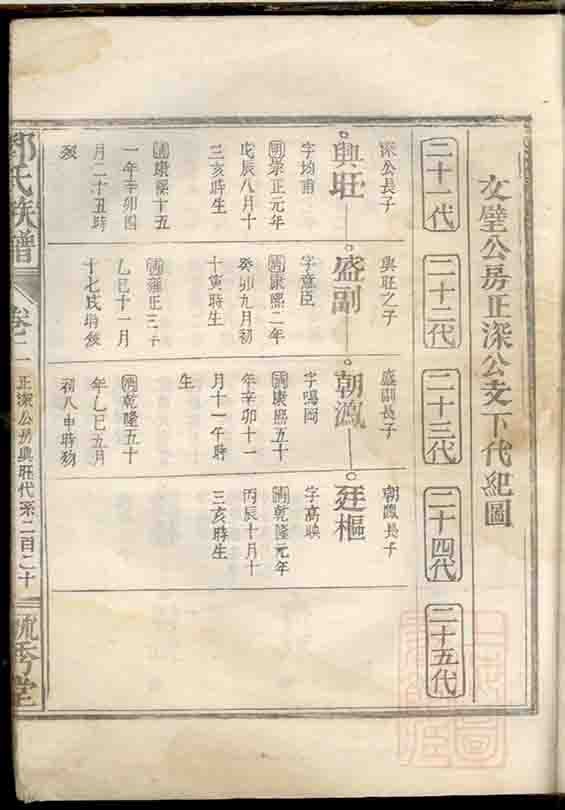 文璧公房正深公支下代紀圖
二十一代
二十二代
二十三代
二十四代
二十五代
深公長子
興旺
字均甫
明崇正元年
戊辰八月十
三亥時生
清康熙五十
一年辛卯四
月二十五時
歿
興旺之子
盛副
字意臣
清康熙二年
癸卯九月初
十寅時生
清雍正三年
乙巳十一月
十七戌時歿
盛副長子
朝鳳
字鳴岡
清康熙五十
年辛卯十一
月十一午時
生
清乾隆五十
年乙巳五月
初八申時歿
朝鳳長子
廷樞
字高映
清乾隆元年
丙辰十月十
三亥時生
氏族譜
卷二
正深公房興旺代系二百二十
毓秀堂